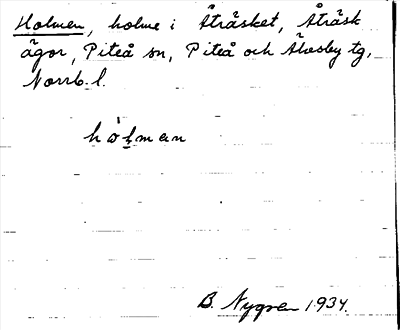 Holmen, holme i Åträsket, Åträsk
ägor, Piteå sn, Piteå och Älvsby tg,
Norrb. l.
hòlman
B. Nygren 1934.